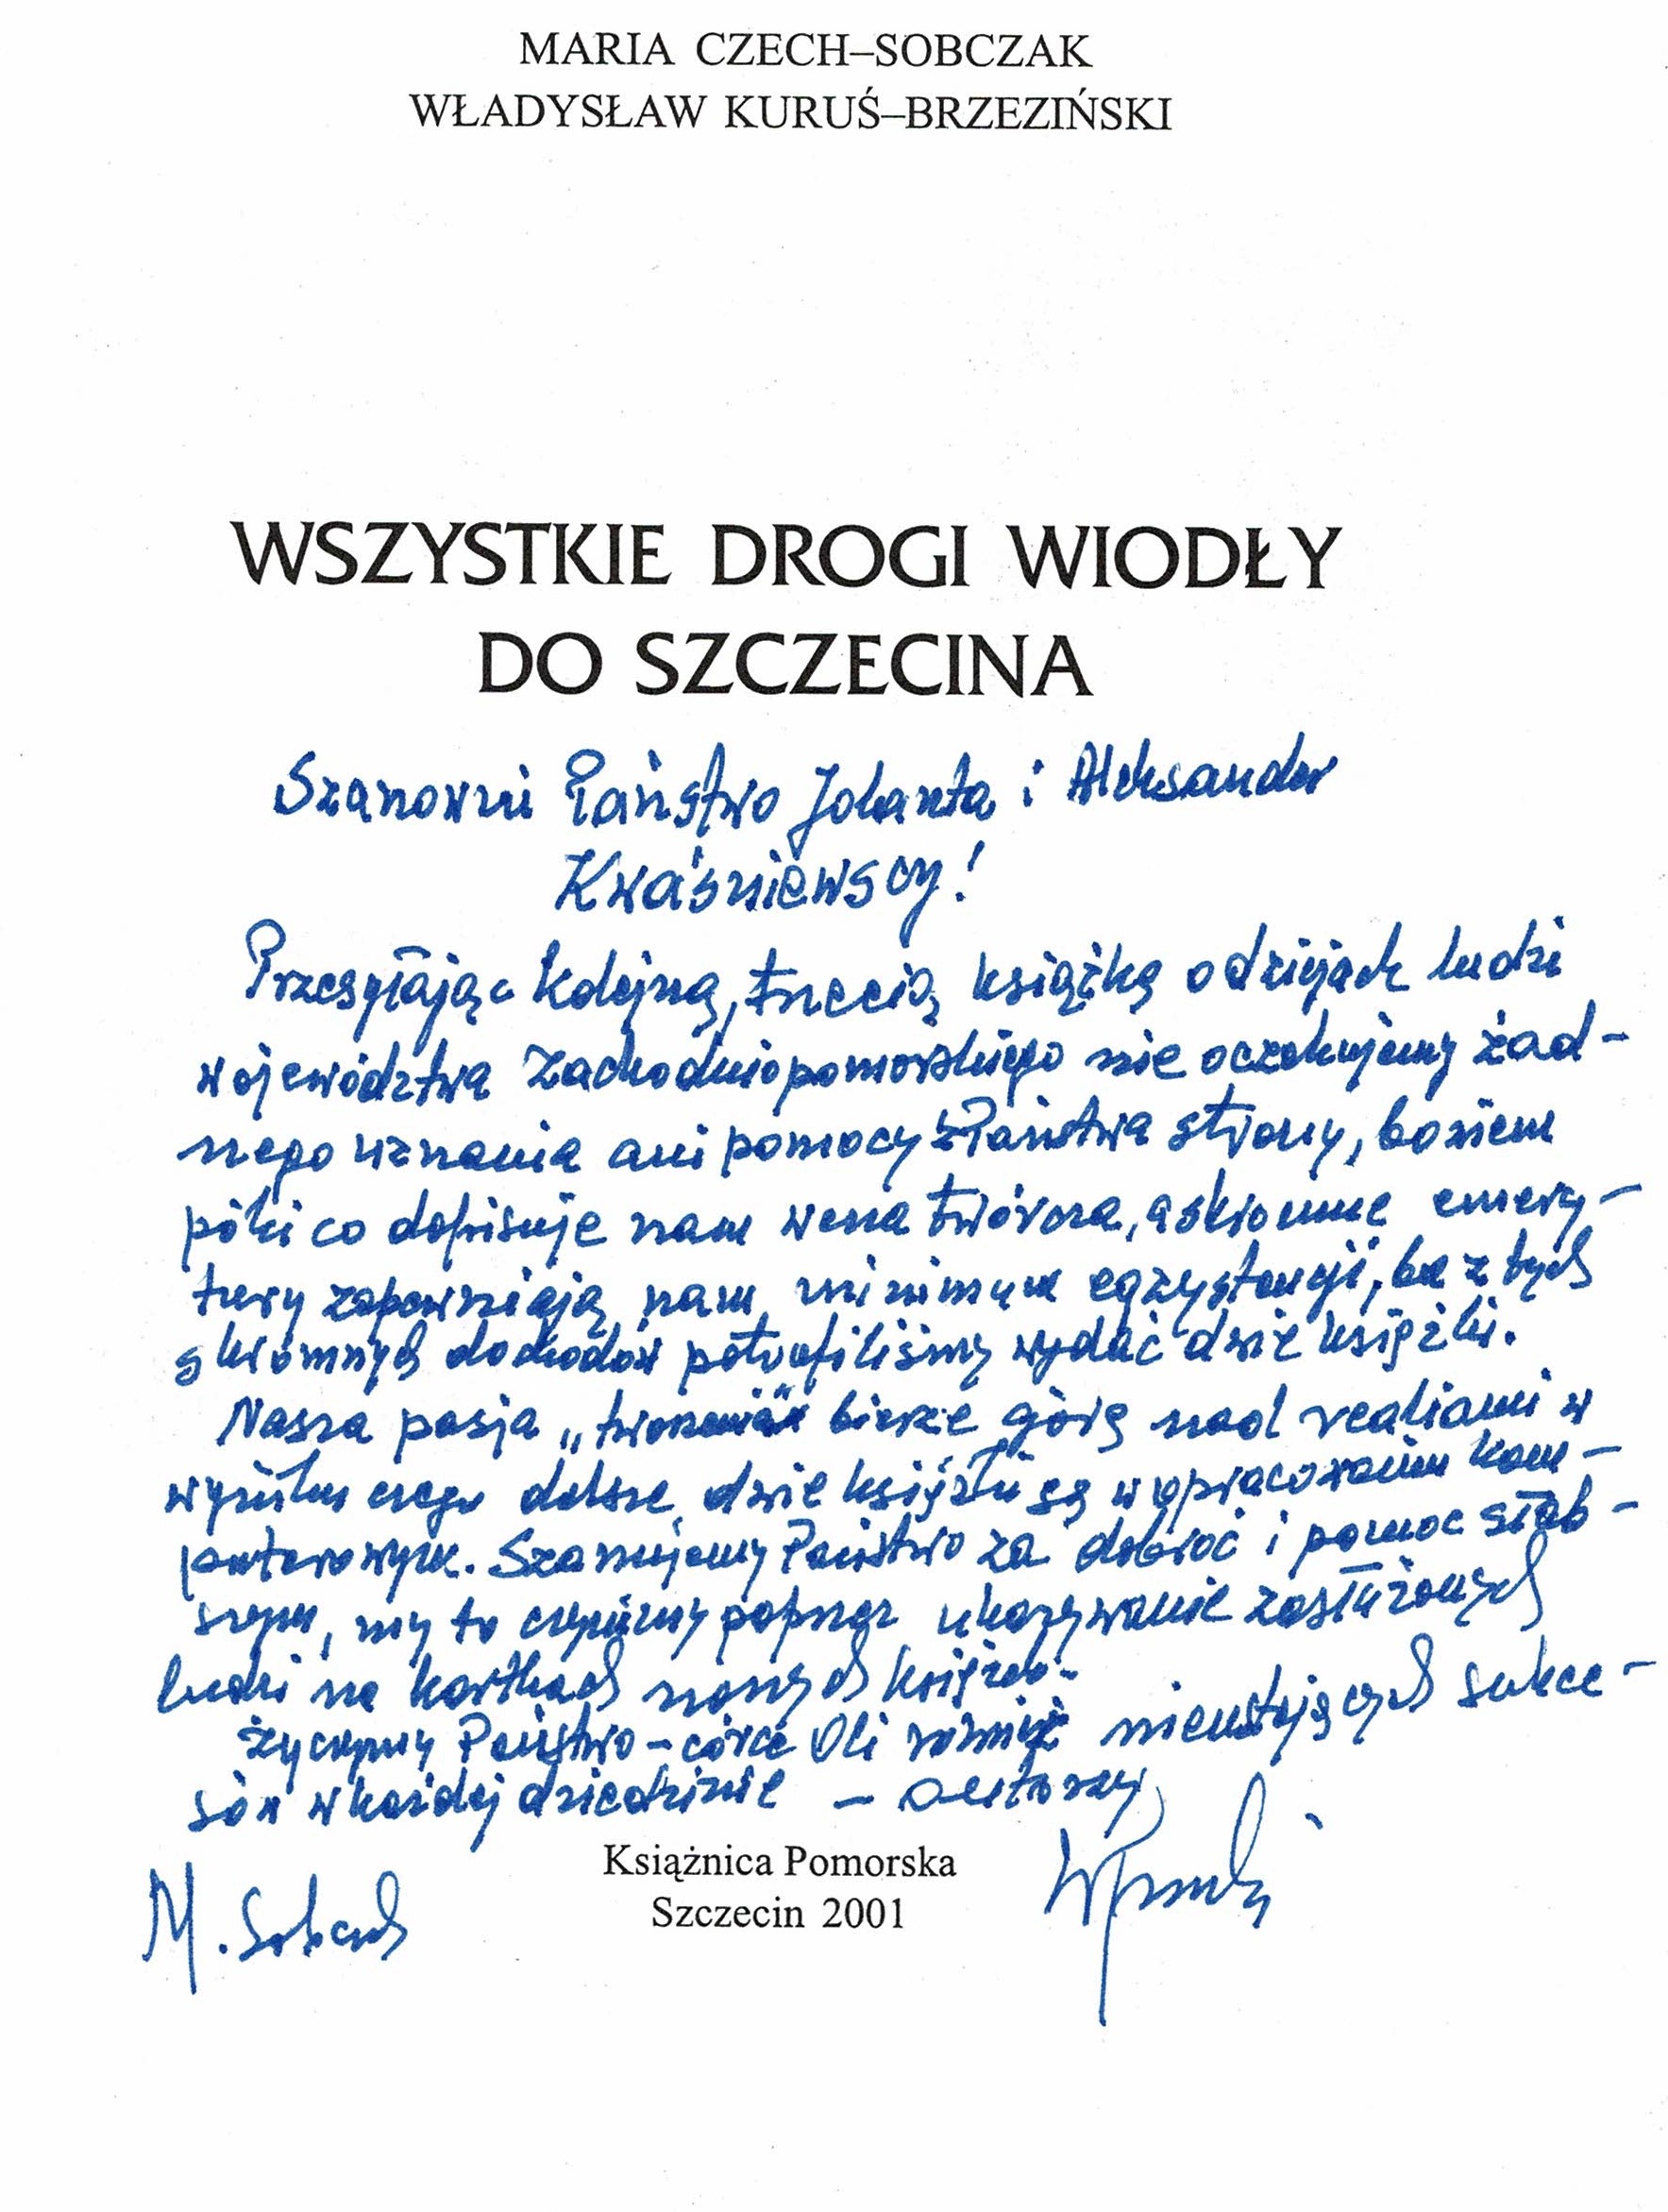 MARIA CZECH–SOBCZAK
WŁADYSŁAW KURUŚ–BRZEZIŃSKI
WSZYSTKIE DROGI WIODŁY
DO SZCZECINA
Szanowni Państwo Jolanta i Aleksander
Kwaśniewscy!
Przesyłając kolejną, trzecią książkę o dziejach ludzi
województwa Zachodniopomorskiego nie oczekujemy żad–
nego uznania ani pomocy z Państwa strony, bowiem
póki co dopisuje nam wena twórcza, a skromne emery–
tury zapewniają nam minimum egzystencji, bo z tych
skromnych dochodów potrafiliśmy wydać dwie książki.
Nasza pasja „tworzenia" bierze górę nad realiami w
wyniku czego dalsze dwie książki są w opracowaniu kom–
puterowym. Szanujemy Państwo za dobroć i pomoc słab–
szym, my to czynimy poprzez ukazywanie zasłużonych
ludzi na kartkach naszych książek.
Życzymy Państwo – córce Oli również nieustających sukce–
sów w każdej dziedzinie – Autorzy
Książnica Pomorska
Szczecin 2001
M. Sobczak